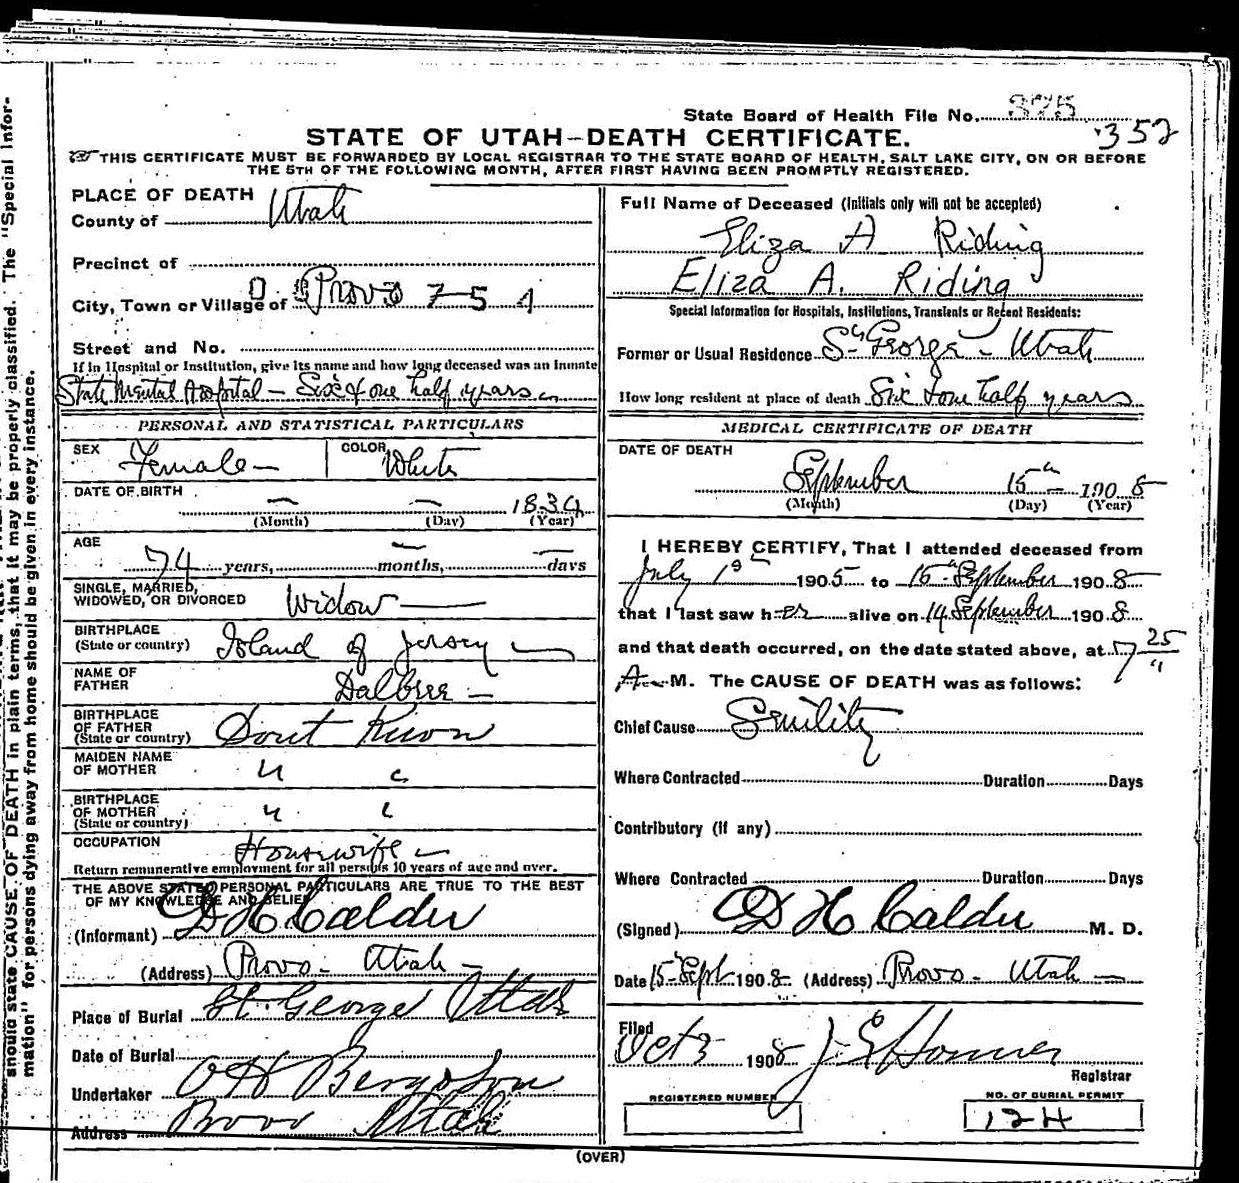 State Board of Health File No. 325
352
STATE OF UTAH—DEATH CERTIFICATE.
THIS CERTIFICATE MUST BE FORWARDED BY LOCAL REGISTRAR TO THE STATE BOARD OF HEALTH, SALT LAKE CITY, ON OR BEFORE
THE 5TH OF THE FOLLOWING MONTH, AFTER FIRST HAVING BEEN PROMPTLY REGISTERED.
should state CAUSE OF DEATH in plain terms, that it may be properly classified. The "Special Infor-
mation" for persons dying away from home should be given in every instance.
PLACE OF DEATH
County of Utah
Precinct of
City, Town or Village of Provo 7 5 1
Street and No.
If in Hospital or Institution, give its name and how long deceased was an Inmate
State Mental Hospital — Six & one half years
PERSONAL AND STATISTICAL PARTICULARS
SEX Female COLOR White
DATE OF BIRTH
— — 1834
(Month) (Day) (Year)
AGE
74 years, — months, — days
SINGLE, MARRIED,
WIDOWED, OR DIVORCED Widow
BIRTHPLACE
(State or country) Island of Jersey
NAME OF
FATHER Dalbree
BIRTHPLACE
OF FATHER
(State or country) Dont Know
MAIDEN NAME
OF MOTHER " "
BIRTHPLACE
OF MOTHER
(State or country) " "
OCCUPATION
Housewife
Return remunerative employment for all persons 10 years of age and over.
THE ABOVE STATED PERSONAL PARTICULARS ARE TRUE TO THE BEST
OF MY KNOWLEDGE AND BELIEF
(Informant) D H Calder
(Address) Provo - Utah
Place of Burial St. George Utah
Date of Burial
Undertaker O H Bergdson
Address Provo Utah
Full Name of Deceased (Initials only will not be accepted)
Eliza A Riding
Eliza A. Riding
Special Information for Hospitals, Institutions, Transients or Recent Residents:
Former or Usual Residence St George - Utah
How long resident at place of death Six & one half years
MEDICAL CERTIFICATE OF DEATH
DATE OF DEATH
September 15th 1908
(Month) (Day) (Year)
I HEREBY CERTIFY, That I attended deceased from
July 1st 1905 to 15th September 1908
that I last saw her alive on 14 September 1908
and that death occurred, on the date stated above, at 7 25
A M. The CAUSE OF DEATH was as follows:
Chief Cause Senility
Where Contracted Duration Days
Contributory (if any)
Where Contracted Duration Days
(Signed) D H Calder M. D.
Date 15 Sept 1908 (Address) Provo - Utah
Filed
Oct 5 1908 J E Homer
Registrar
REGISTERED NUMBER
NO. OF BURIAL PERMIT
124
(OVER)